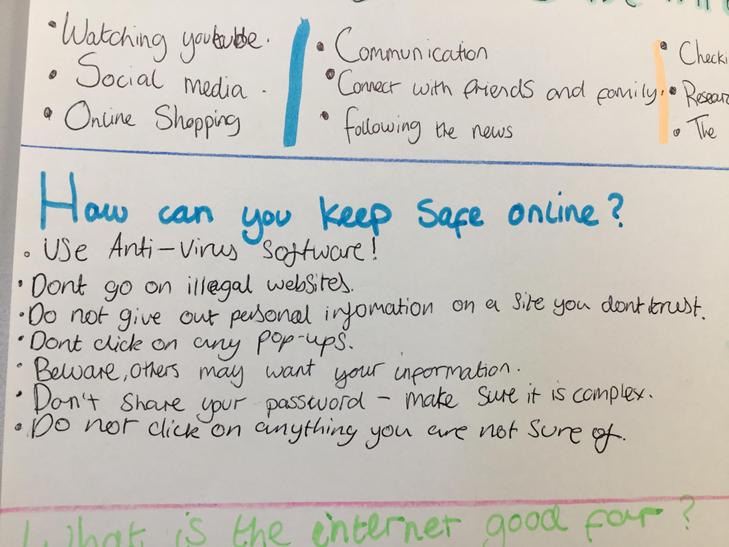 • Watching youtube.
• Social media.
• Online Shopping
• Communication
• Connect with friends and family.
• following the news
• Checki
• Resear
• The
How can you keep safe online?
• Use Anti-Virus Software!
• Dont go on illegal websites.
• Do not give out personal infomation on a site you dont trust.
• Dont click on any pop-ups.
• Beware, others may want your information.
• Don't share your password - make sure it is complex.
• Do not click on anything you are not sure of.
What is the internet good for?